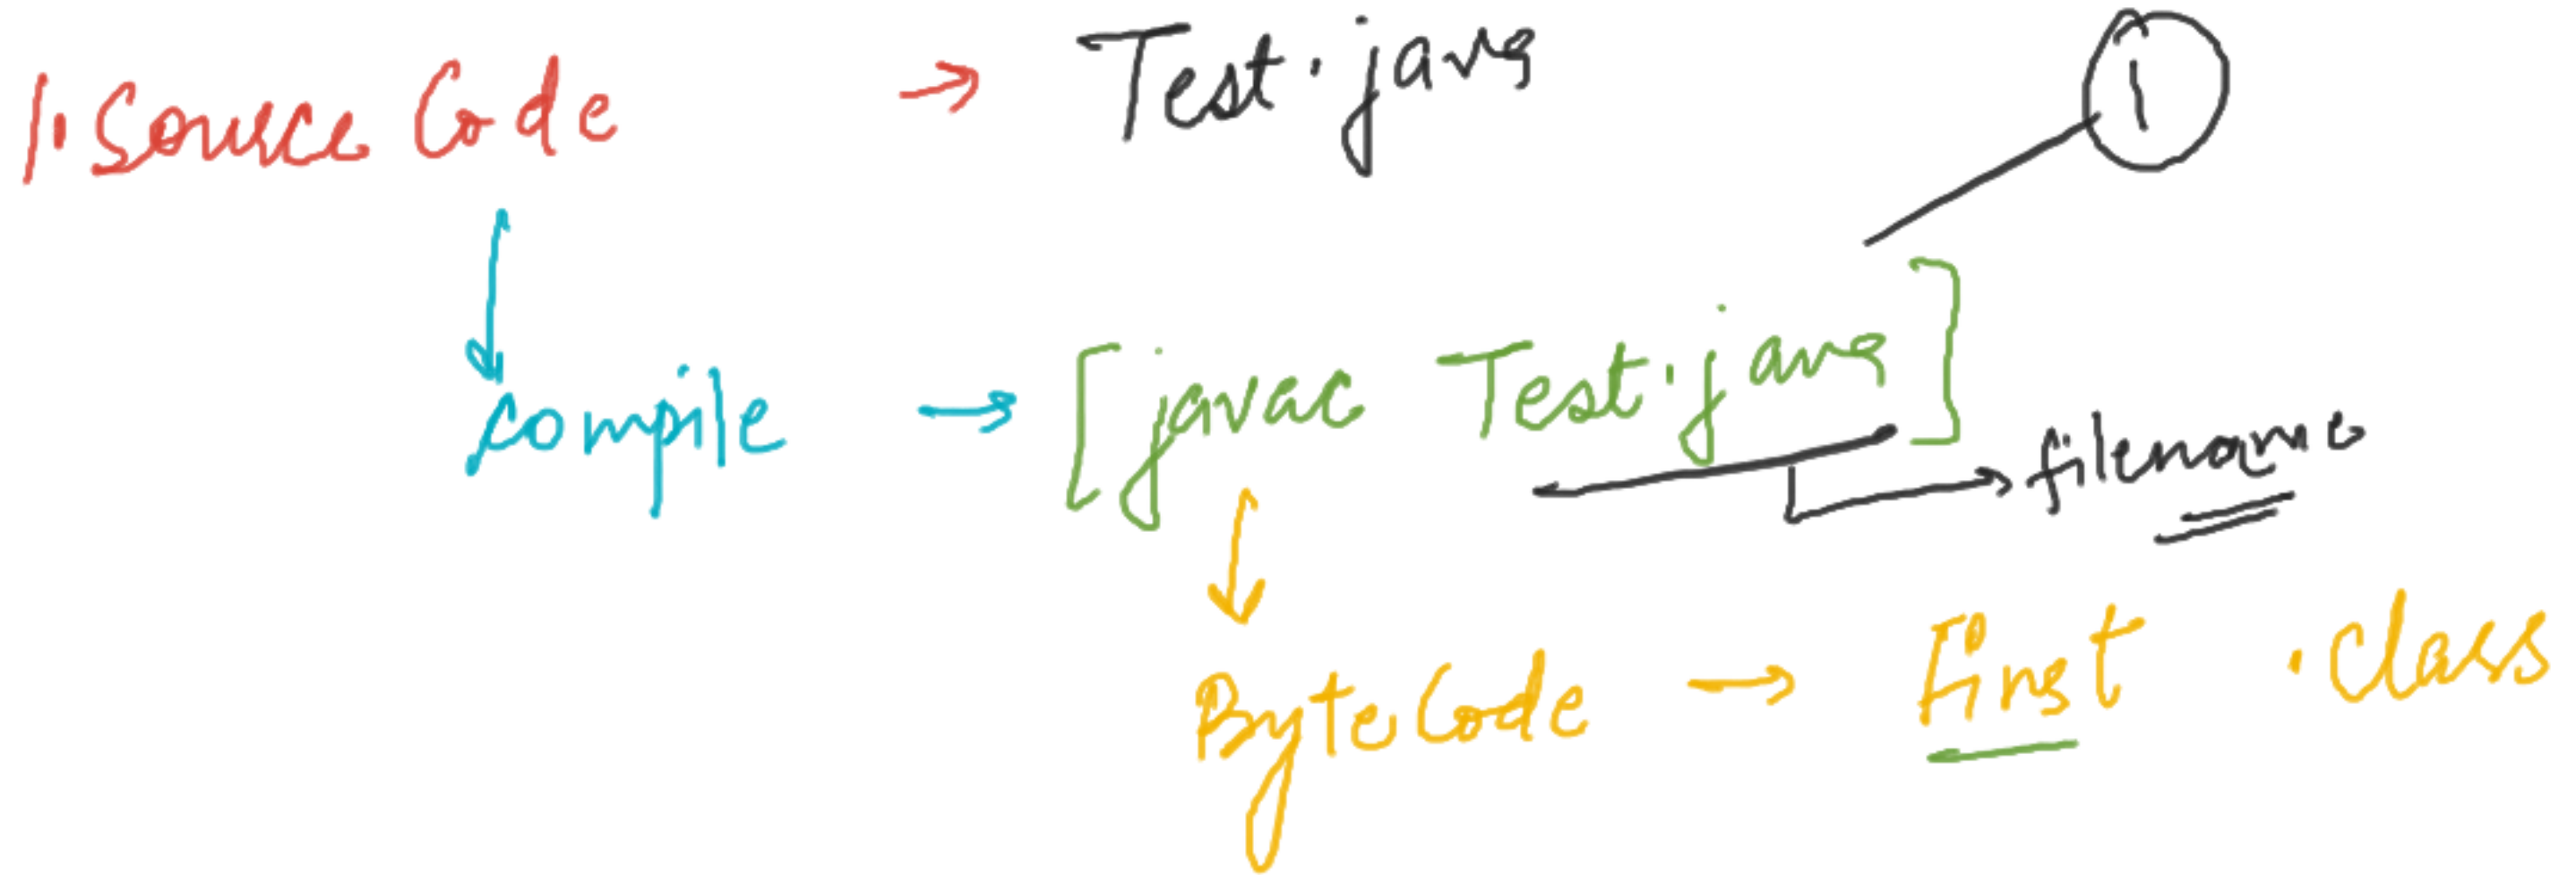 1. Source Code → Test.java
1
compile → [javac Test.java]
filename
ByteCode → First .class